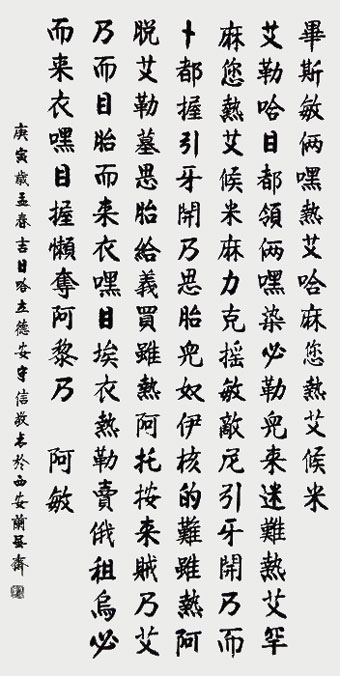 畢斯敏倆嘿熱艾哈麻您熱艾候米
艾勒哈日都領倆嘿染必勒兒來迷難熱艾罕
麻您熱艾候米麻力克摇敏敵尼引牙開乃而
卜都握引牙開乃思胎兒奴伊核的難雖熱阿
脱艾勒墓思胎給義買雖熱阿托按來賊乃艾
乃而目胎而来衣嘿目埃衣熱勒賣俄租烏必
而来衣嘿目握懶奪阿黎乃 阿敏
庚寅歲孟春吉日哈立德安守信敬書於西安蘭齋